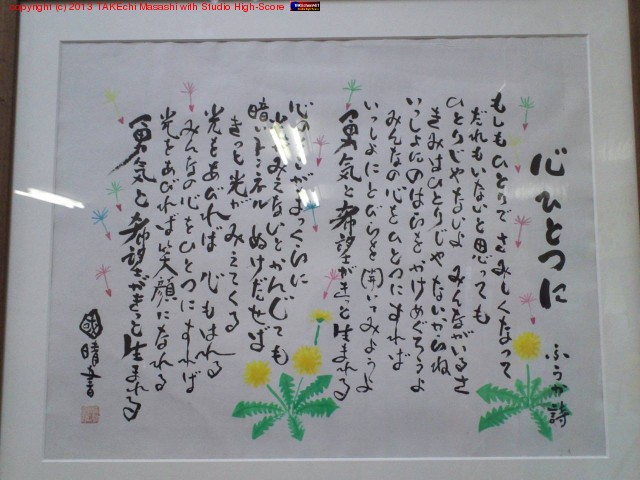 copyright (c) 2013 TAKEchi Masashi with Studio High-Score
心ひとつに
ふうか詩
もしもひとりで さみしくなって
だれもいないと思っても
ひとりじゃないよ みんながいるさ
きみはひとりじゃないからね
いっしょにのはらをかけめぐろうよ
みんなの心をひとつにすれば
いっしょにとびらを開いてみようよ
勇気と希望がきっと生まれる
心の
みえないとかんじても
暗いトンネル ぬけだせば
きっと光がみえてくる
光をあびれば 心もはれる
みんなの心をひとつにすれば
光をあびれば笑顔になれる
勇気と希望がきっと生まれる
國晴書